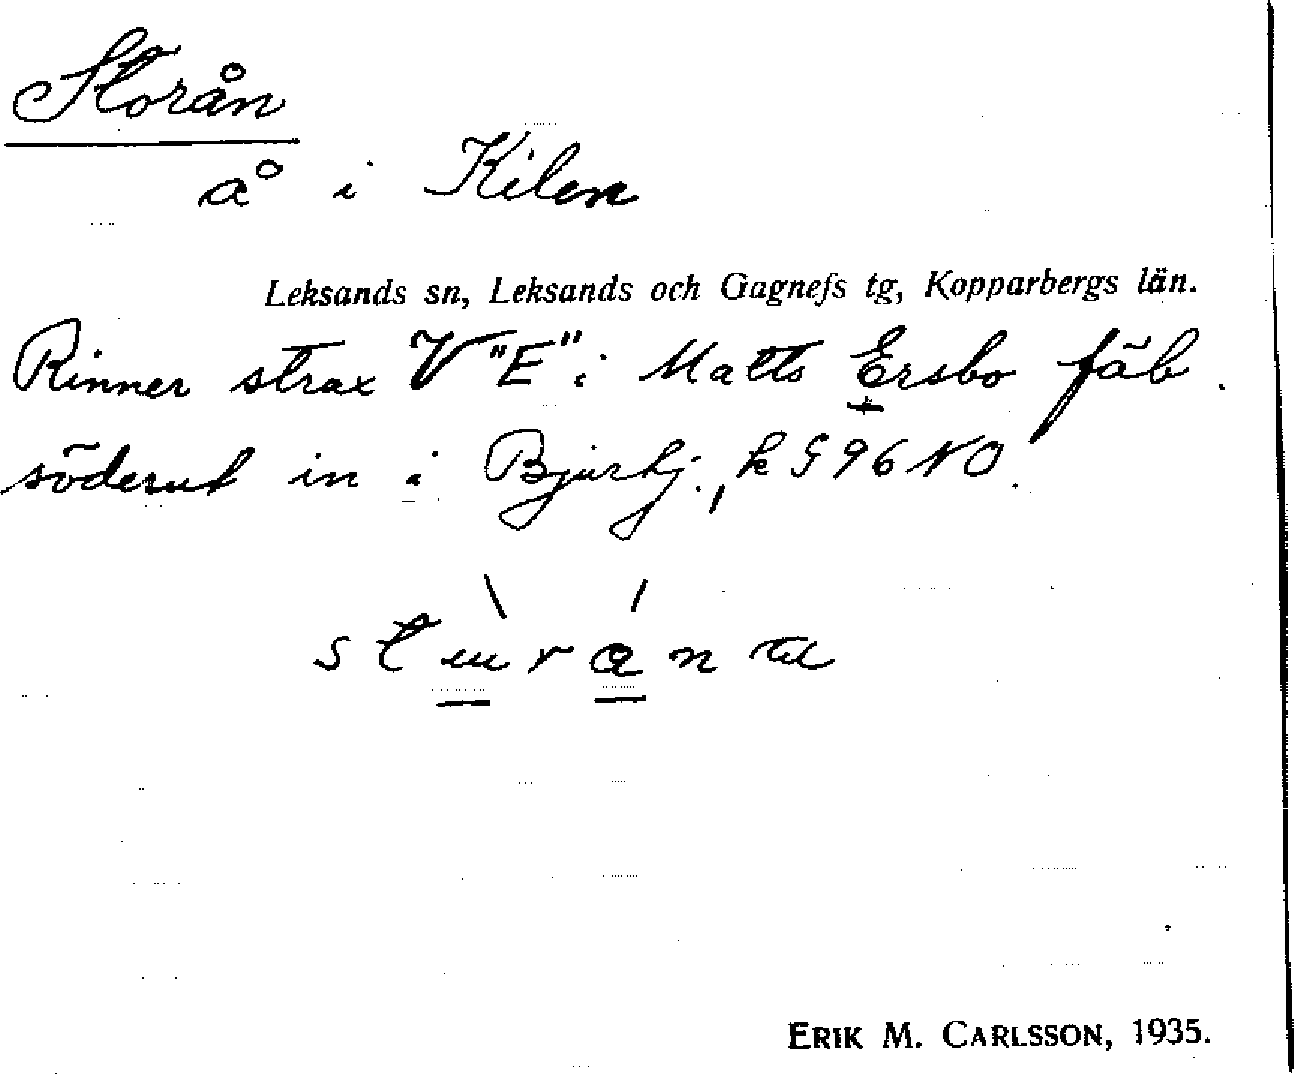 Storån
å i Kilen
Leksands sn, Leksands och Gagnefs tg, Kopparbergs län.
Rinner strax V "E" i Matts Ersbo fäb.
söderut in i Bjurtj., k G 96 NO.
ERIK M. CARLSSON, 1935.